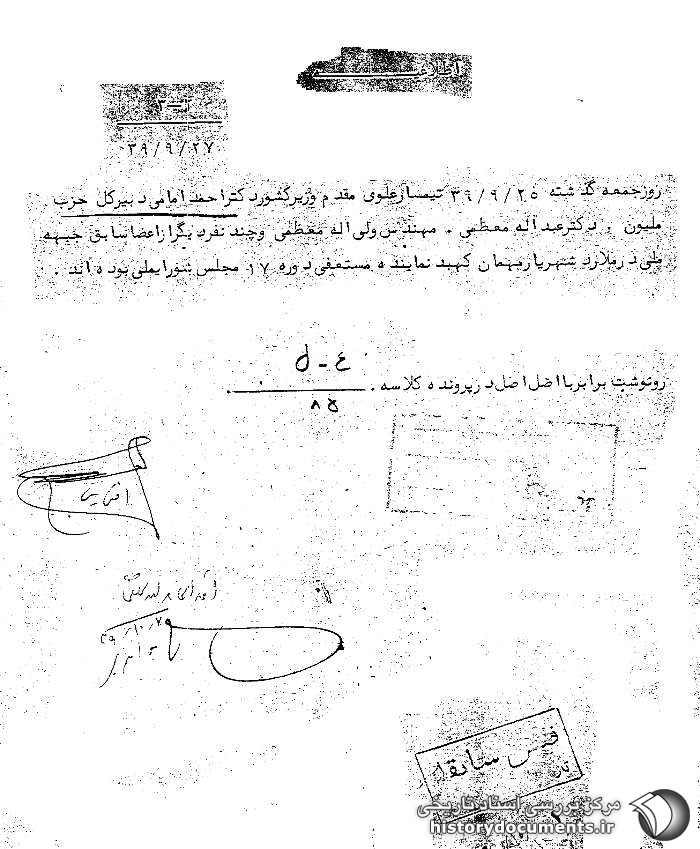 اطلاعیه
۳ـ
۳۹/۹/۲۷
روزجمعه گذشته ۳۹/۹/۲۵ تیمسارعلوی مقدم وزیرکشوردکتراحمد امامی دبیرکل حزب
ملیون . دکترعبداله معظمی . مهندس ولی اله معظمی وچند نفردیگرازاعضا سابق جبهه
ملی درملارد شهریارمهمان کهبد نماینده مستعفی دوره ۱۷ مجلس شورایملی بوده اند .
ع - ل
رونوشت برابربااصل اصل درپرونده کلاسه .
۸۵
۳۹/۱۰/
فیش سابقه
مرکز بررسی اسناد تاریخی
historydocuments.ir